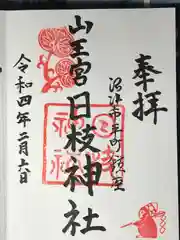 奉拝
沼津市平町鎮座
山王宮日枝神社
令和四年二月七日